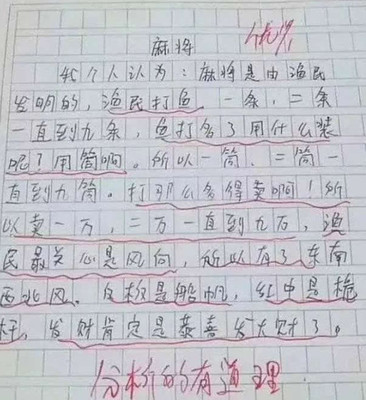 麻将
优秀
我个人认为：麻将是由渔民
发明的，渔民打鱼，一条，二条
一直到九条，鱼打多了用什么装
呢？用筒啊。所以一筒、二筒一
直到九筒。打那么多得卖啊！所
以卖一万，二万一直到九万，渔
民最关心是风向，所以有了东南
西北风。白板是船帆，红中是桅
杆，发财肯定是恭喜发大财了。
分析的有道理